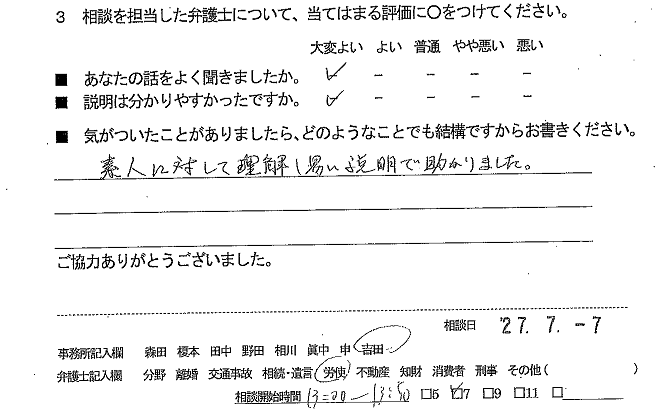 3 相談を担当した弁護士について、当てはまる評価に○をつけてください。
大変よい よい 普通 やや悪い 悪い
■ あなたの話をよく聞きましたか。 ✓ − − − −
■ 説明は分かりやすかったですか。 ✓ − − − −
■ 気がついたことがありましたら、どのようなことでも結構ですからお書きください。
素人に対して理解し易い説明で助かりました。
ご協力ありがとうございました。
相談日 '27. 7. -7
事務所記入欄 森田 榎本 田中 野田 相川 眞中 申 吉田
弁護士記入欄 分野 離婚 交通事故 相続・遺言 労使 不動産 知財 消費者 刑事 その他(
相談開始時間 13:20 ― 13:50 □5 ☑7 □9 □11 □